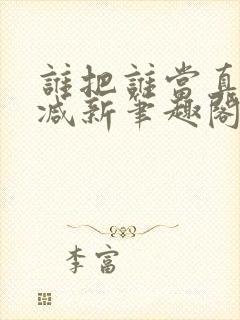 誰把誰當真
减新筆趣閣
李富